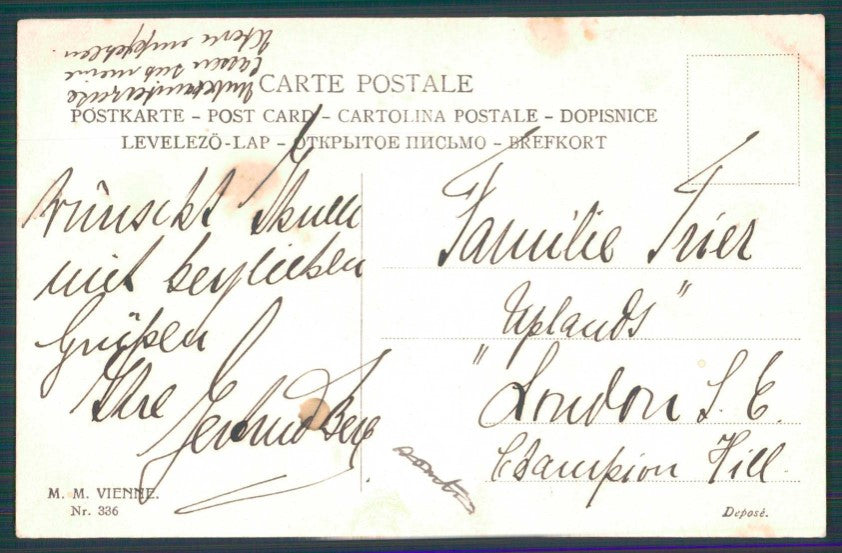 CARTE POSTALE
POSTKARTE – POST CARD – CARTOLINA POSTALE – DOPISNICE
LEVELEZŐ-LAP – ОТКРЫТОЕ ПИСЬМО – BREFKORT
wünscht Ihnen
mit herzlichen
Grüßen
Ihre
Gertrud Berg
Familie Trier
Uplands"
"London S. E.
Champion Hill.
M. M. VIENNE.
Nr. 336
Deposé.
lassen und meine
Eltern empfehlen.